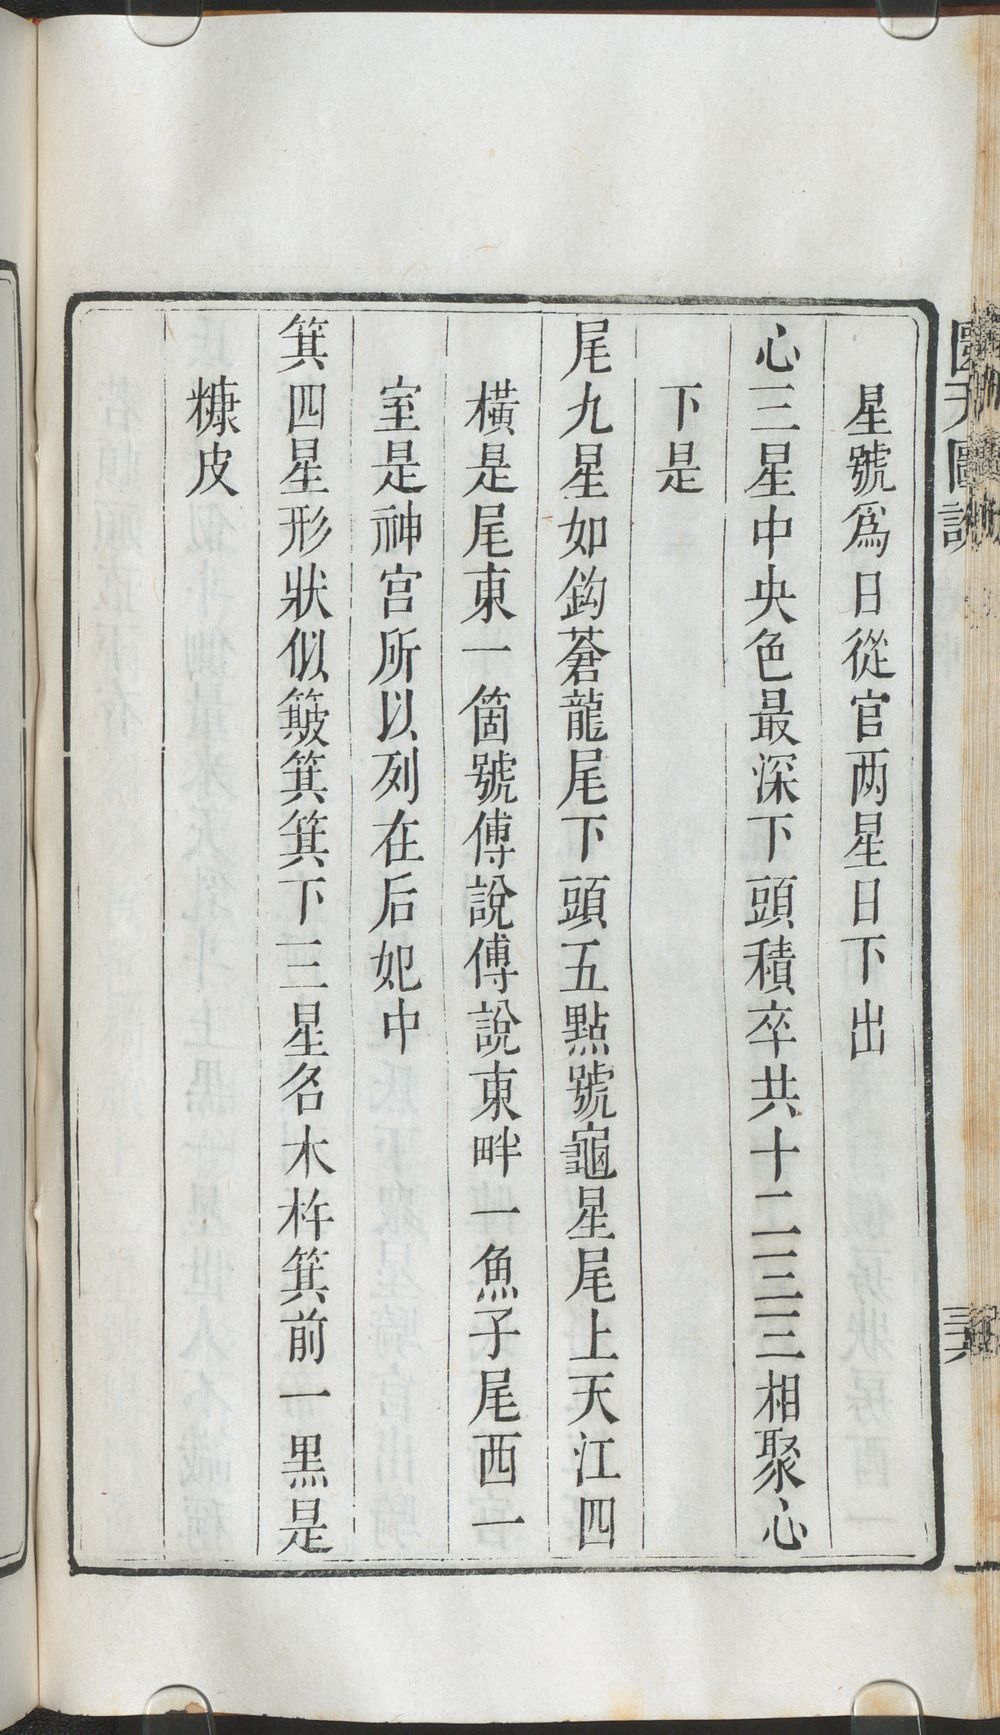 星號爲日從官两星日下出
心三星中央色最深下頭積卒共十二三三相聚心
下是
尾九星如鈎蒼龍尾下頭五點號龜星尾上天江四
橫是尾東一箇號傅說傅說東畔一魚子尾西一
室是神宮所以列在后妃中
箕四星形狀似簸箕箕下三星名木杵箕前一黒是
糠皮